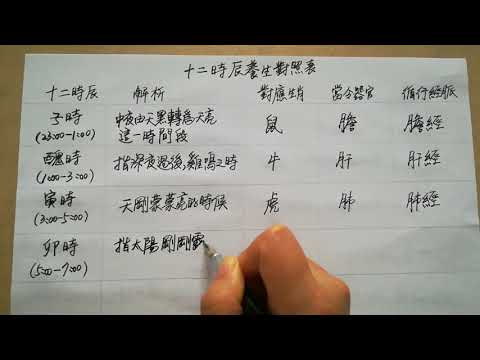 十二時辰養生對照表
十二時辰 解析 對應生肖 當令器官 循行經脈
子時 中夜由天黑轉爲天亮 鼠 膽 膽經
(23:00-1:00) 這一時間段
醜時 指深夜過後,雞鳴之時 牛 肝 肝經
(1:00-3:00)
寅時 天剛蒙蒙亮的時候 虎 肺 肺經
(3:00-5:00)
卯時 指太陽剛剛露
(5:00-7:00)